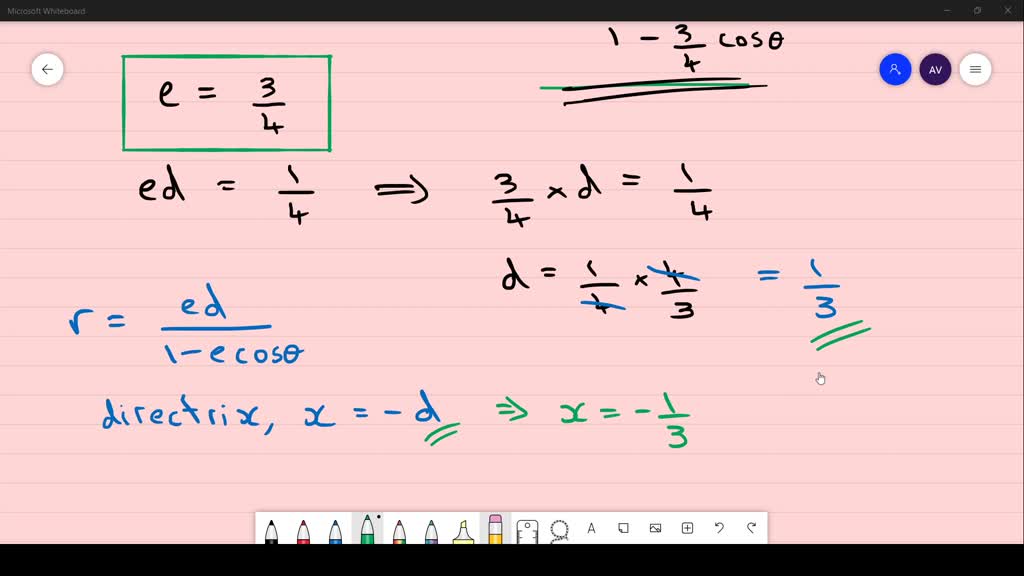 Microsoft Whiteboard
1 - 3/4 cosθ
AV
e = 3/4
ed = 1/4 ⇒ 3/4 × d = 1/4
d = 1/4 × 4/3 = 1/3
r = ed/1-ecosθ
directrix, x = -d ⇒ x = -1/3
A